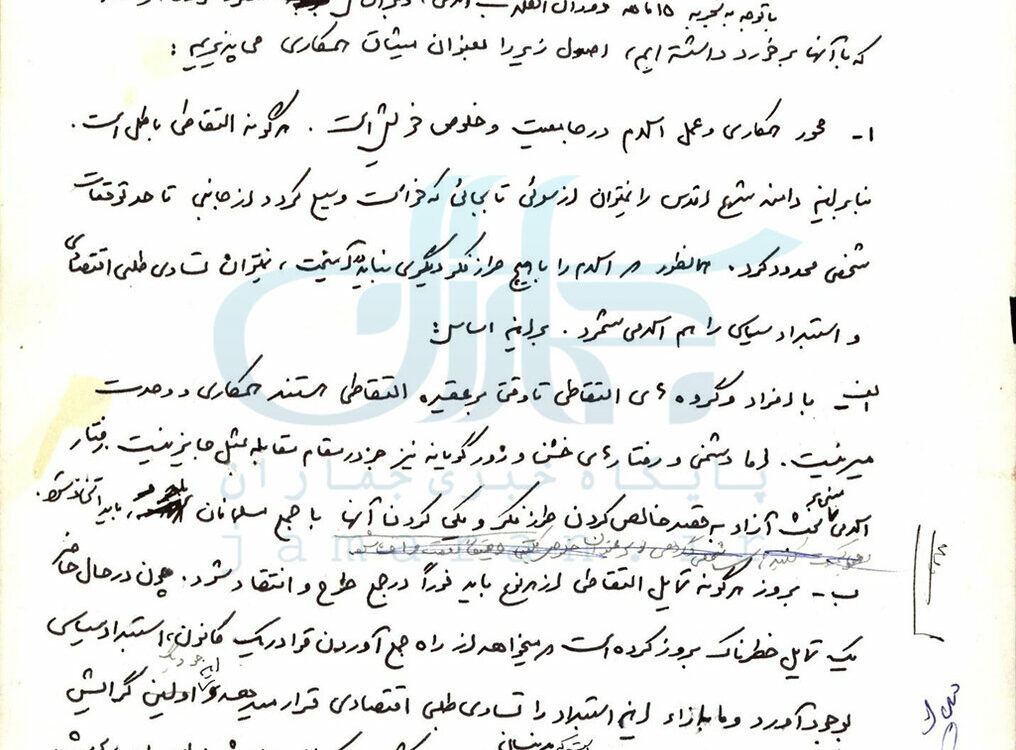 با توجه به تجربه ۱۵ ماهه
که با آنها برخورد داشته ایم، اصول زیر را بعنوان میثاق همکاری می پذیریم :
۱- محور همکاری و عمل اسلام در جامعیت و خلوص خویش است . هرگونه التقاطی باطل است .
بنابراین دامن شرع اقدس را نمیتوان از سوئی تا بجائی که خواست وسیع کرد و از جانبی تا حد توقعات
شخصی محدود کرد . همانطور که اسلام را با هیچ طرز فکر دیگری نباید آمیخت ، نمیتوان تساوی طلبی اقتصادی
و استبداد سیاسی را هم اسلامی شمرد . براین اساس :
الف - با افراد و گروه های التقاطی تا وقتی بر عقیده التقاطی هستند همکاری و وحدت
میسر نیست . اما دشمنی و رفتارهای خشن و زورگویانه نیز جز در مقام مقابله بمثل جایز نیست . رفتار
اسلامی مبنی بر بحث آزاد به قصد خالص کردن طرز فکر و یکی کردن آنها با جمع مسلمانان باید اتخاذ شود .
ب - بروز هرگونه تمایل التقاطی از هر نوع باید فوراً در جمع طرح و انتقاد شود . چون در حال حاضر
یک تمایل خطرناک بروز کرده است که میخواهد از راه جمع آوردن قوا در یک کانون، استبداد سیاسی
بوجود آورد و ما بازاء این استبداد را تساوی طلبی اقتصادی قرار میدهد و اولین گرایش
جماران
پایگاه خبری جماران
jamaran.ir